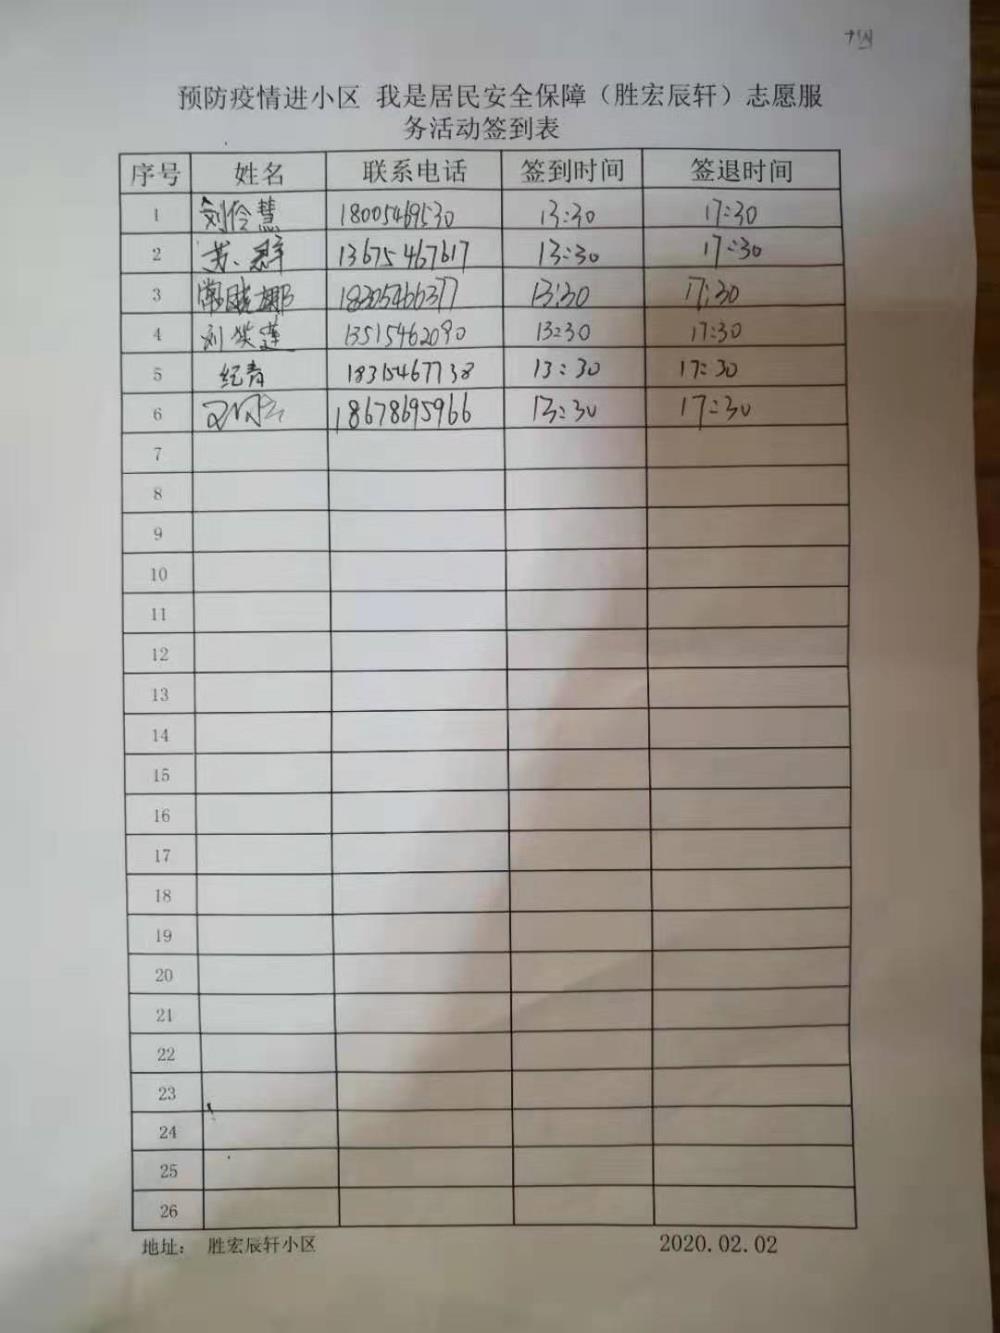 预防疫情进小区 我是居民安全保障（胜宏辰轩）志愿服
务活动签到表
序号 姓名 联系电话 签到时间 签退时间
1 刘伶慧 18005469530 13:30 17:30
2 苏群 13675467617 13:30 17:30
3 常晓娜 18305466377 13:30 17:30
4 刘笑莲 13515462090 13:30 17:30
5 纪青 18315467738 13:30 17:30
6 18678695966 13:30 17:30
7
8
9
10
11
12
13
14
15
16
17
18
19
20
21
22
23
24
25
26
地址： 胜宏辰轩小区 2020.02.02